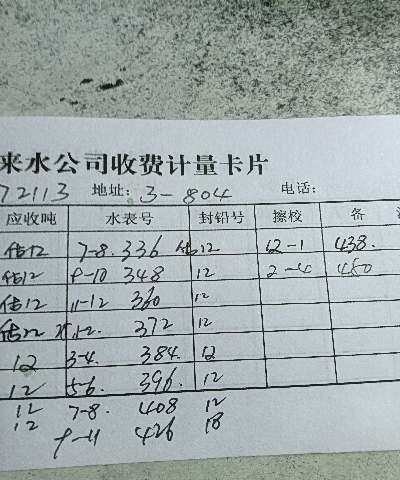 来水公司收费计量卡片
72113 地址: 3-804 电话:
应收吨 水表号 封铅号 擦校 备
估12 7-8. 336 估12 12-1 438.
估12 9-10 348 12 2-4 450
估12 11-12 360 12
估12 1-2. 372 12
12 3-4. 384. 12
12 5-6. 396. 12
12 7-8. 408 12
12 9-11 426 18